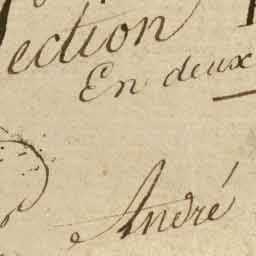 ection
En deux
André